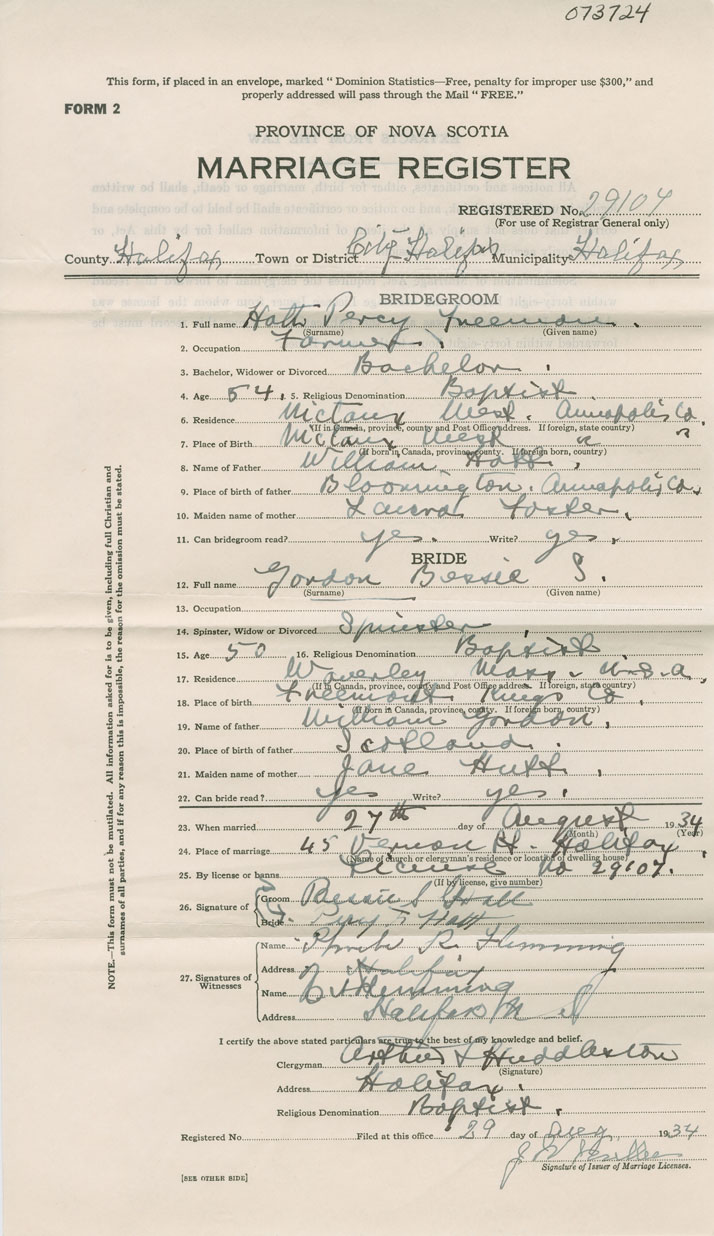 073724
This form, if placed in an envelope, marked "Dominion Statistics—Free, penalty for improper use $300," and
properly addressed will pass through the Mail "FREE."
FORM 2
PROVINCE OF NOVA SCOTIA
MARRIAGE REGISTER
REGISTERED No. 29107
(For use of Registrar General only)
County Halifax Town or District City Halifax Municipality Halifax
BRIDEGROOM
1. Full name Hatt Percy Freeman
(Surname) (Given name)
2. Occupation Farmer
3. Bachelor, Widower or Divorced Bachelor
4. Age 54 5. Religious Denomination Baptist
6. Residence Nictaux West. Annapolis Co.
(If in Canada, province, county and Post Office address. If foreign, state country)
7. Place of Birth Nictaux West " "
(If born in Canada, province, county. If foreign born, country)
8. Name of Father William Hatt
9. Place of birth of father Bloomington. Annapolis Co.
10. Maiden name of mother Laura Foster
11. Can bridegroom read? yes. Write? yes
BRIDE
12. Full name Gordon Bessie S.
(Surname) (Given name)
13. Occupation
14. Spinster, Widow or Divorced Spinster
15. Age 50 16. Religious Denomination Baptist
17. Residence Waverley Mass. U.S.A.
(If in Canada, province, county and Post Office address. If foreign, state country)
18. Place of birth Freemont. Kings Co.
(If born in Canada, province, county. If foreign born, country)
19. Name of father William Gordon
20. Place of birth of father Scotland
21. Maiden name of mother Jane Hutt
22. Can bride read? yes Write? yes
23. When married 27th day of August 1934
(Month) (Year)
24. Place of marriage 45 Vernon St. Halifax
(Name of church or clergyman's residence or location of dwelling house)
25. By license or banns License No 29107.
(If by license, give number)
26. Signature of Groom Bessie S Hatt
Bride Percy F Hatt
27. Signatures of Witnesses
Name R. Flemming
Address Halifax
Name Flemming
Address Halifax N S
I certify the above stated particulars are true to the best of my knowledge and belief.
Clergyman Arthur S Huddleston
(Signature)
Address Halifax
Religious Denomination Baptist
Registered No. Filed at this office 29 day of Aug 1934
Signature of Issuer of Marriage Licenses.
[SEE OTHER SIDE]
NOTE.—This form must not be mutilated. All information asked for is to be given, including full Christian and
surnames of all parties, and if for any reason this is impossible, the reason for the omission must be stated.